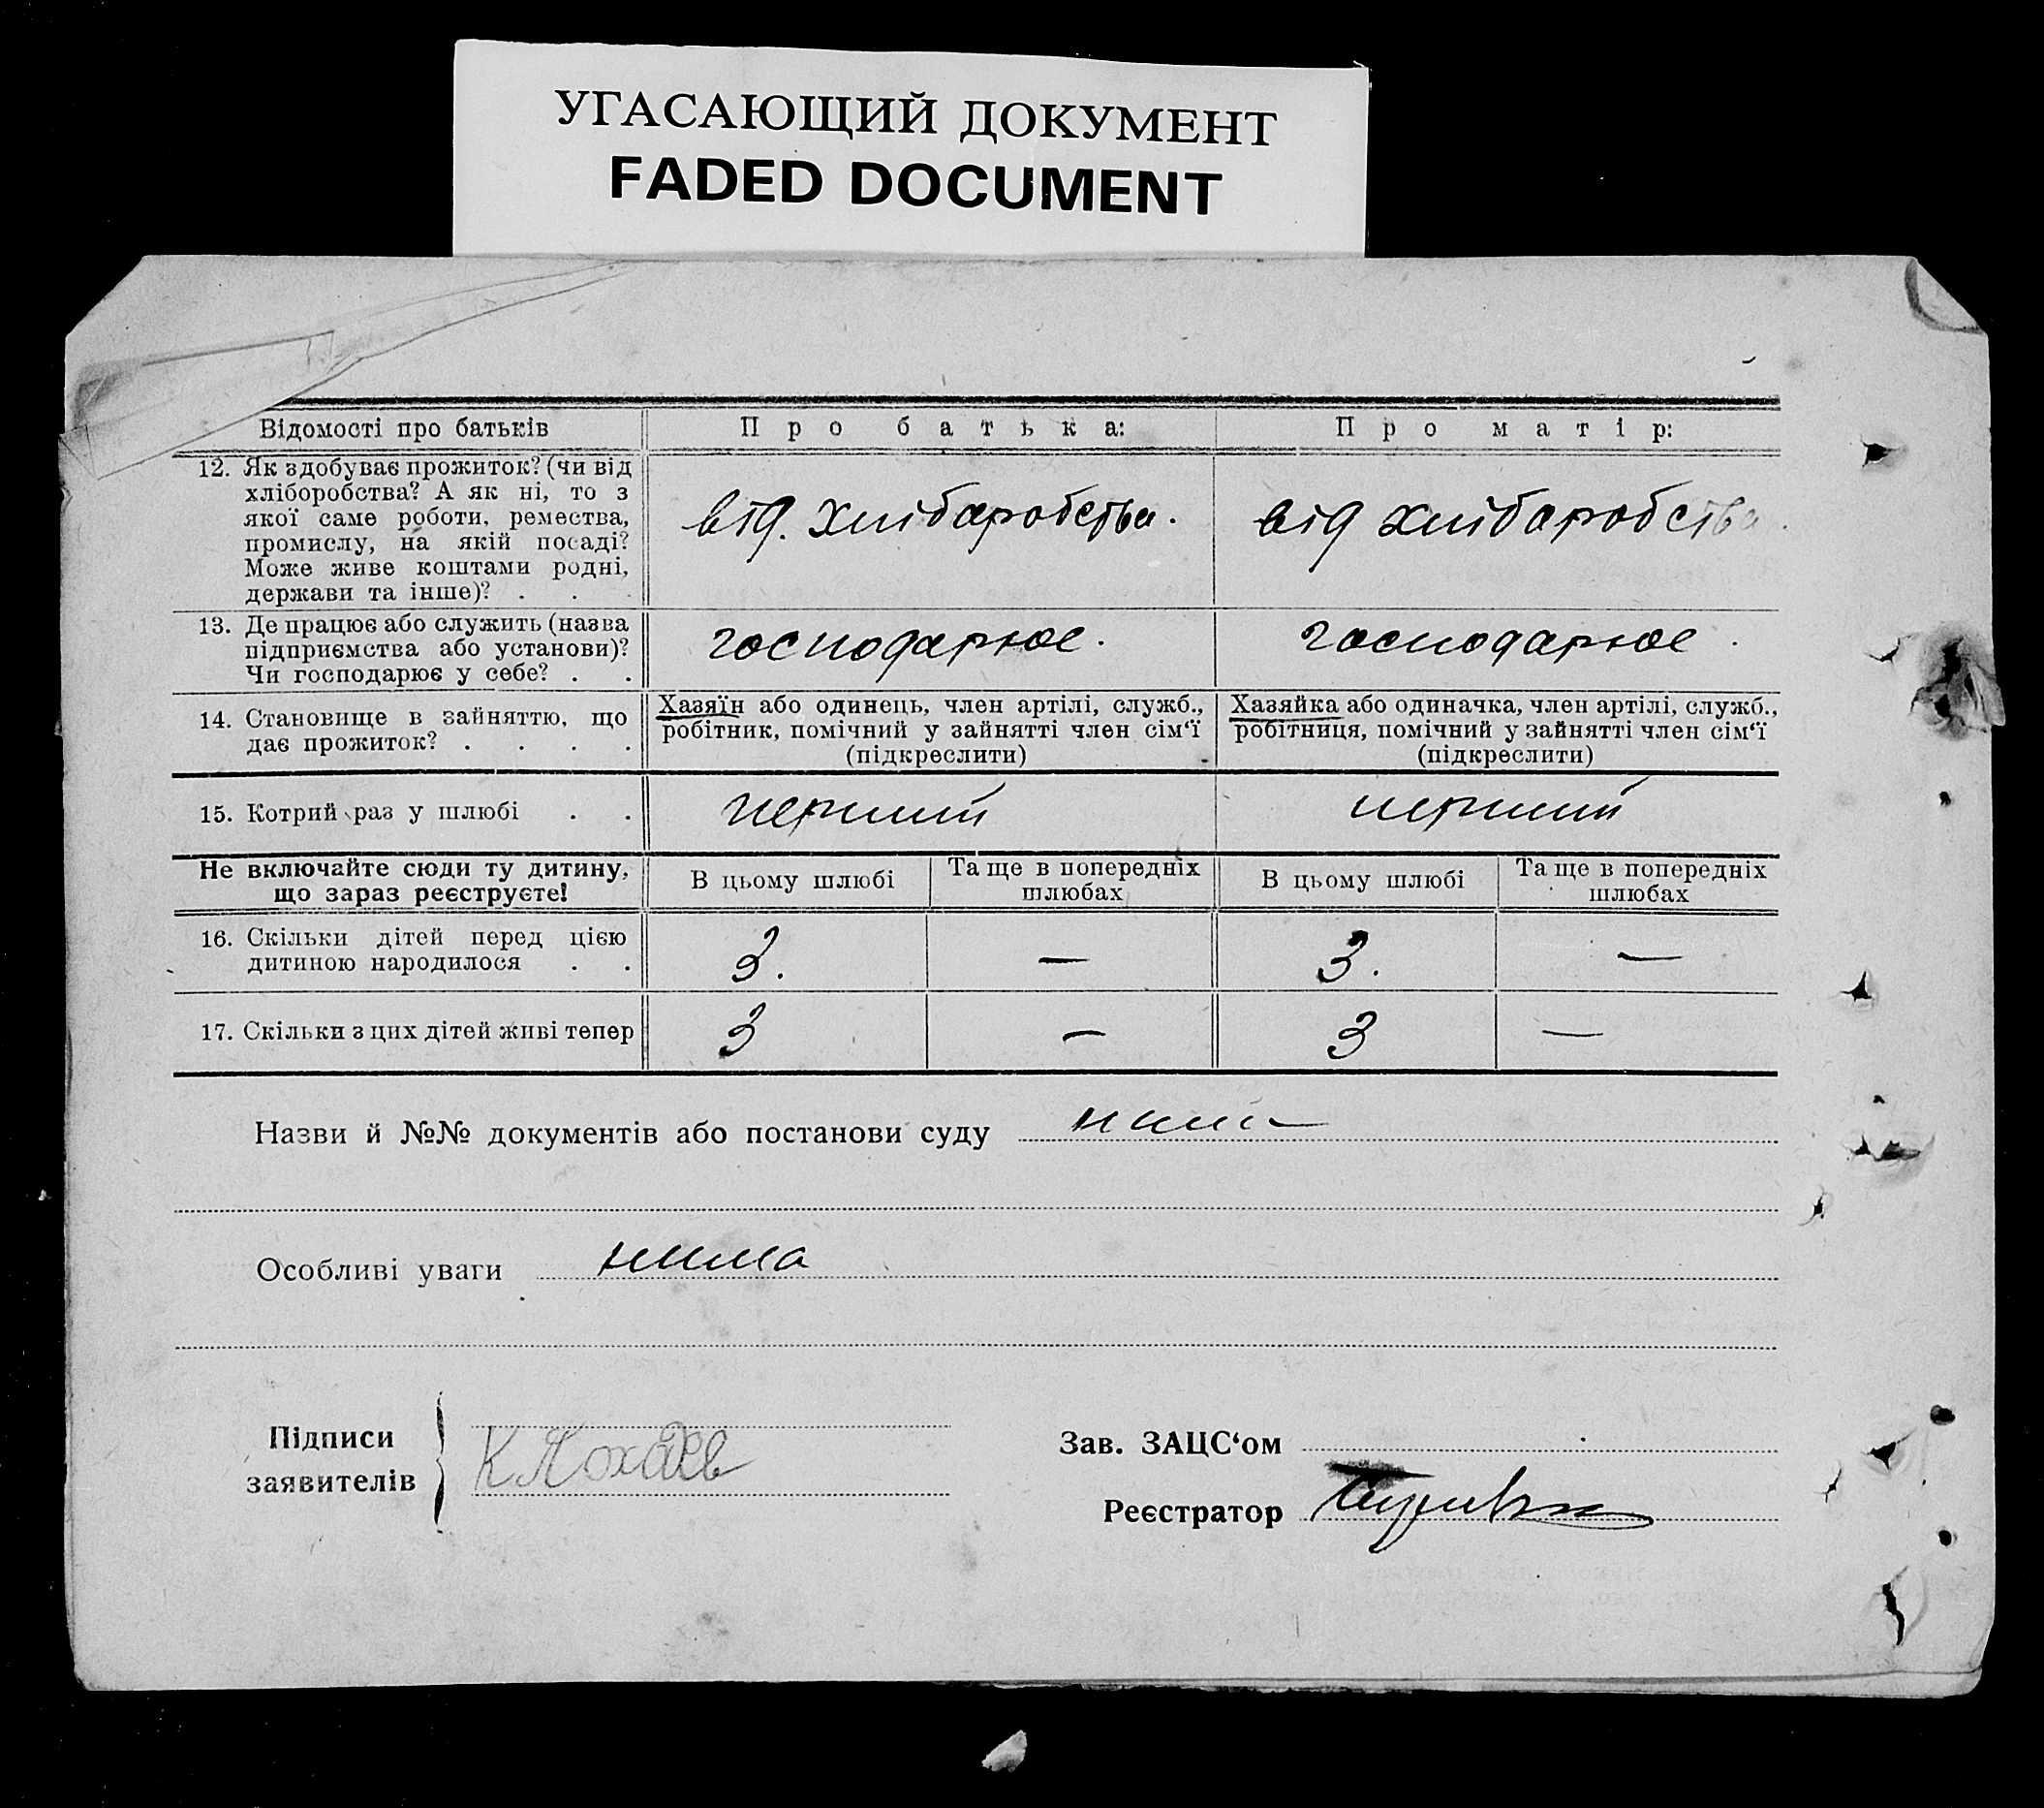 УГАСАЮЩИЙ ДОКУМЕНТ
FADED DOCUMENT
Відомості про батьків
Про батька:
Про матір:
12. Як здобуває прожиток? (чи від
хліборобства? А як ні, то з
якої саме роботи, ремества,
промислу, на якій посаді?
Може живе коштами родні,
держави та інше)? . .
від. хлібаробства.
від хлібаробства.
13. Де працює або служить (назва
підприємства або установи)?
Чи господарює у себе? . .
господарює.
господарює.
14. Становище в зайняттю, що
дає прожиток? . . . .
Хазяїн або одинець, член артілі, служб.,
робітник, помічний у зайнятті член сім‘ї
(підкреслити)
Хазяйка або одиначка, член артілі, служб.,
робітниця, помічний у зайнятті член сім‘ї
(підкреслити)
15. Котрий раз у шлюбі . .
перший
перший
Не включайте сюди ту дитину,
що зараз реєструєте!
В цьому шлюбі
Та ще в попередніх
шлюбах
В цьому шлюбі
Та ще в попередніх
шлюбах
16. Скільки дітей перед цією
дитиною народилося . .
3.
—
3.
—
17. Скільки з цих дітей живі тепер
3
—
3
—
Назви й №№ документів або постанови суду
Особливі уваги нима
Підписи
заявителів
Зав. ЗАЦС‘ом
Реєстратор